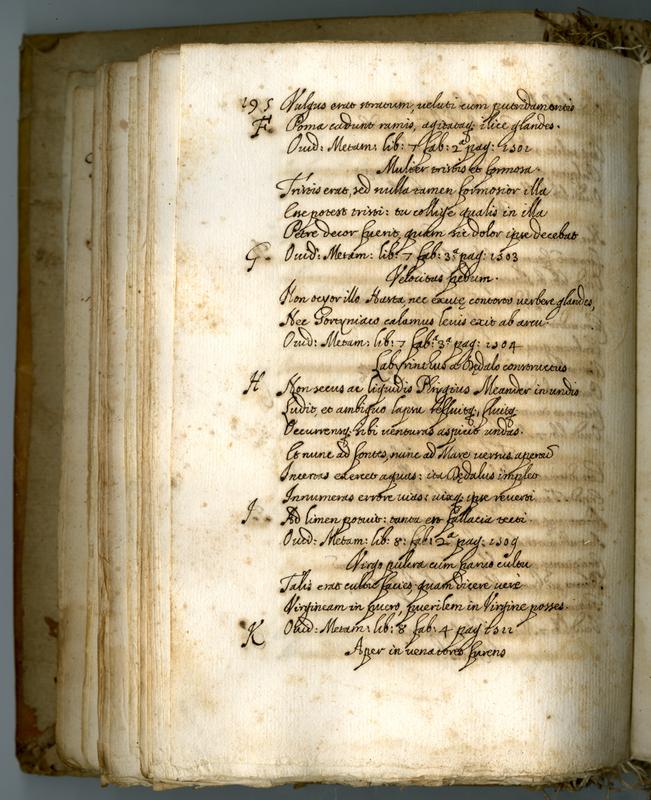 195 Vulgus erat stratum, veluti cum putrida motis
F. Poma cadunt ramis, agitataq; ilice glandes.
Ovid: Metam: lib: 7 fab: 2ª pag: 1501
Mulier tristis et formosa.
Tristis erat, sed nulla tamen formosior illa
Esse potest tristi: tu collige qualis in illa
Petre decor fuerit, quam sic dolor ipse decebat
G. Ovid: Metam: lib: 7 fab: 3ª pag: 1503
Velocitas
Non ocyor illo Hasta nec excutę contorto verbere glandes,
Nec Gortyniaco calamus levis exit ab arcu.
Ovid: Metam: lib: 7 fab: 3ª pag: 1504
Labyrinthus a Dędalo constructus
H Non secus ac liquidis Phrygius Meander in undis
Ludit, et ambiguo lapsu refluitq; fluitq;
Occurrensq; sibi venturas aspicit undas.
Et nunc ad fontes, nunc ad Mare versus apertū
Incertas exercet aquas: ita Dędalus implet
Innumeras errore vias: vixq; ipse reverti
I. Ad limen potuit: tanta est fallacia tecti
Ovid: Metam: lib: 8: fab: 2ª pag: 1509
Virgo pulcra cum parvo cultu
Talis erat cultu facies quam dicere vere
Virgineam in puero, puerilem in Virgine posses.
K Ovid: Metam: lib: 8 fab: 4 pag 1511
Aper in venatores furens